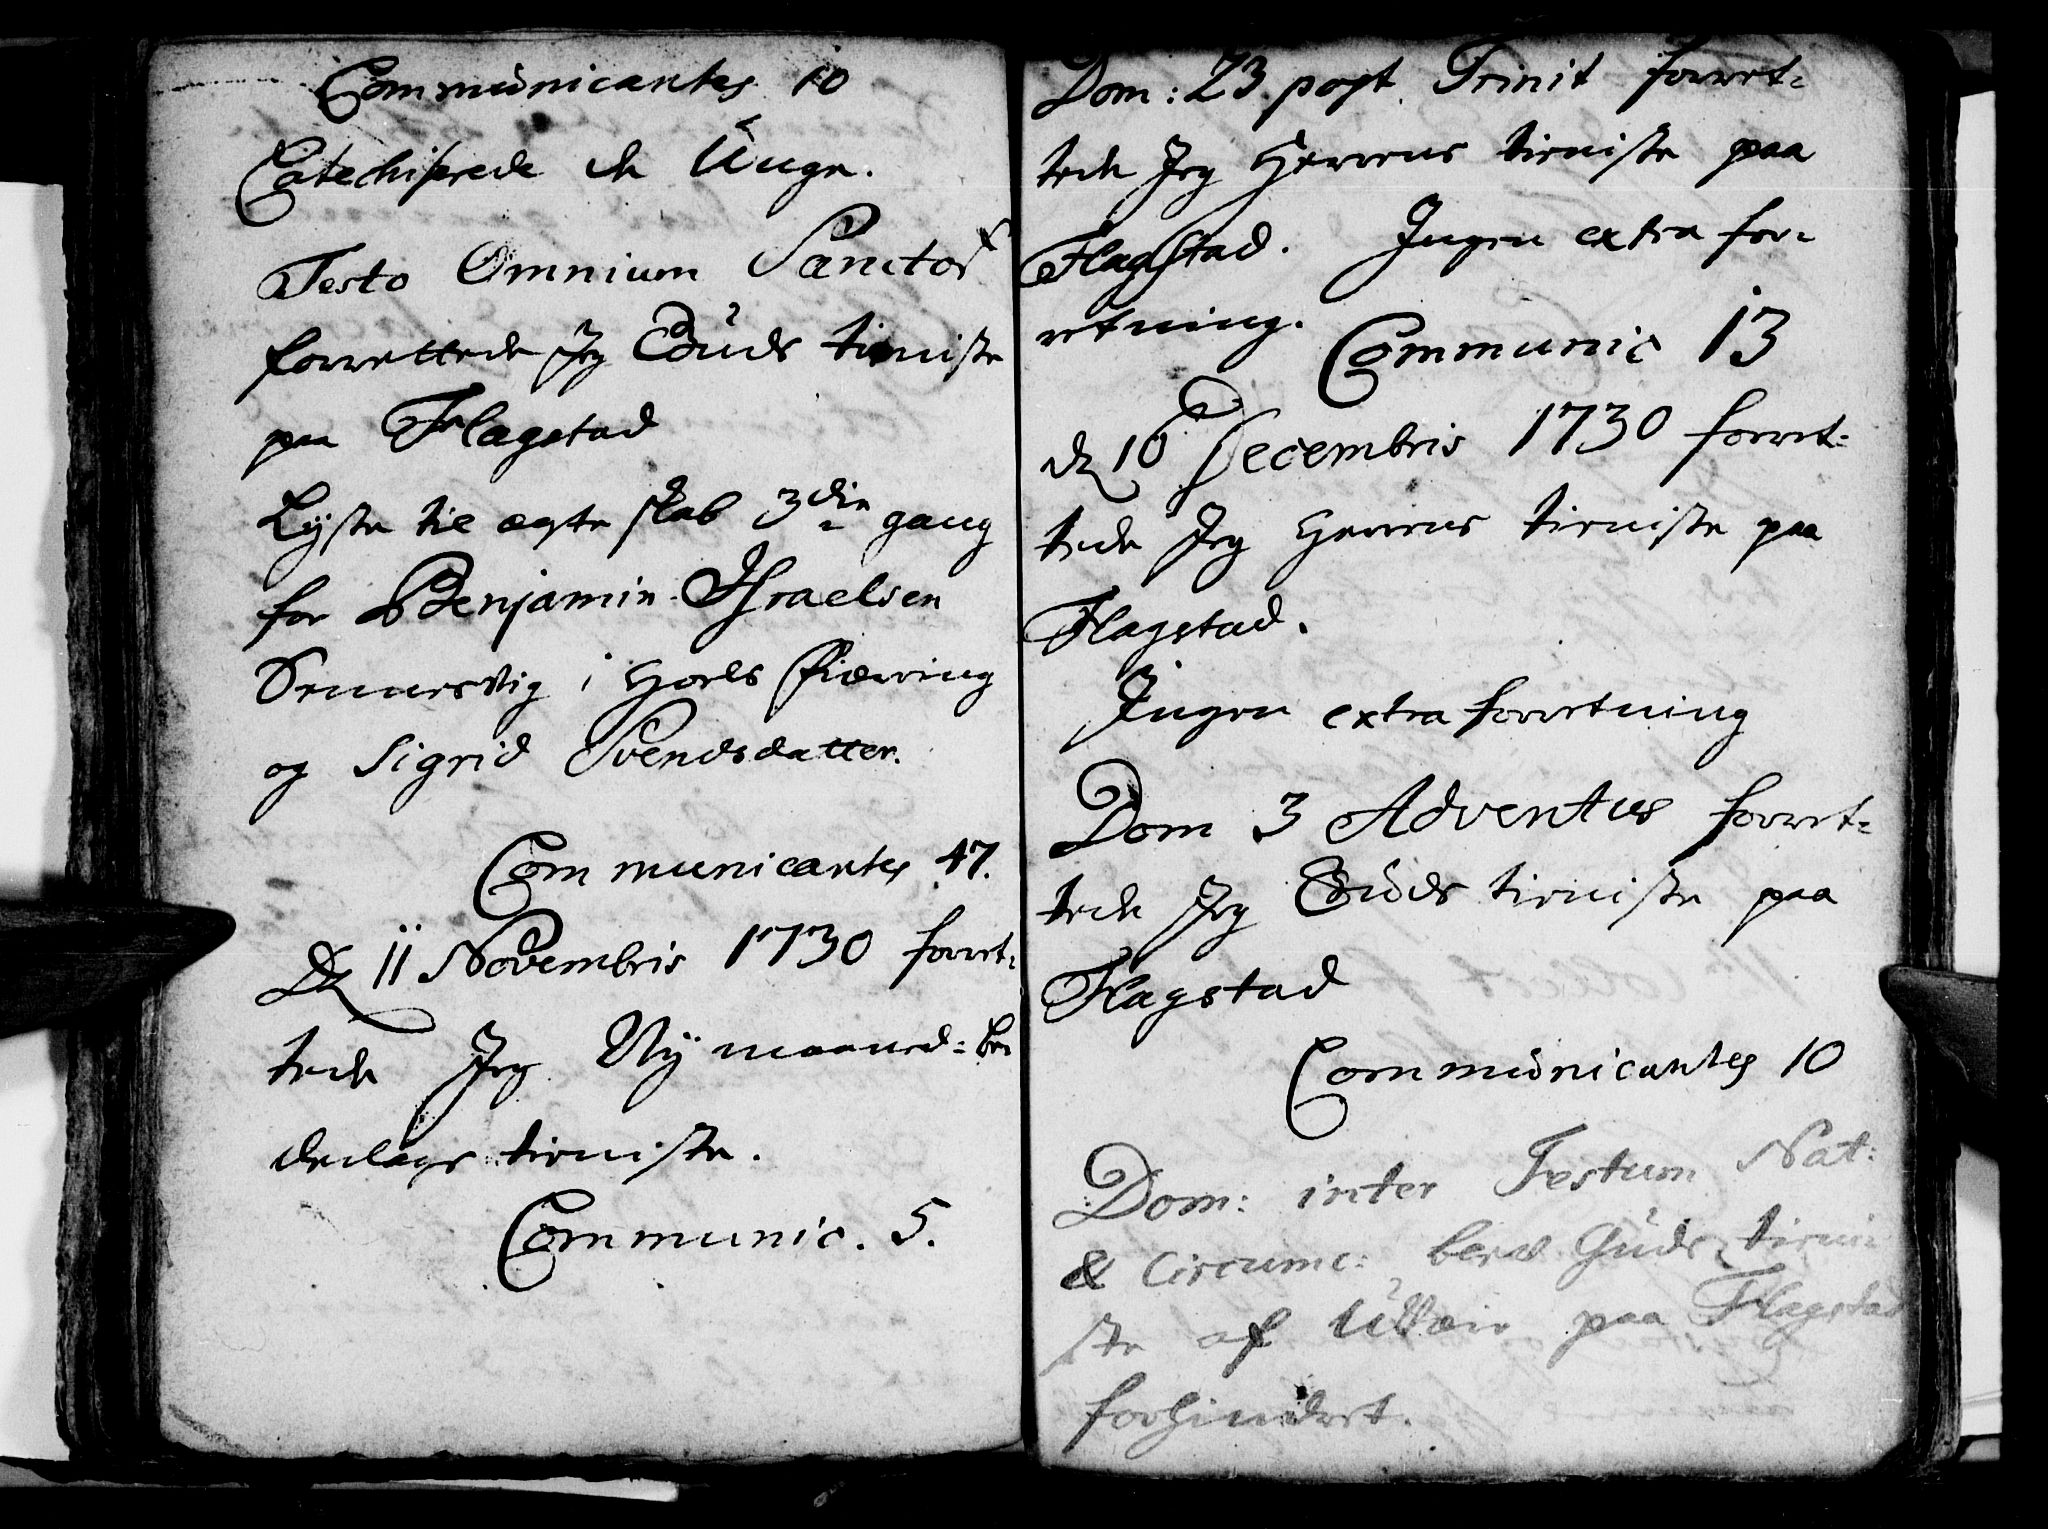 Communicantes 10
Catechiserede de Unge.
Festo Omnium Sanctor
forrettede Jeg Guds tieniste
paa Flagstad
Lyste til ægte skab 3die gang
for Benjamin Israelsen
i Hols fierring
og Sigrid Svendsdatter.
Communicantes 47.
D 11 Novembris 1730 forret-
tede Jeg Ny maaned-be
dedags tieniste.
Communic. 5.
Dom: 23 post Trinit forret-
tede Jeg Herrens tieniste paa
Flagstad. Ingen extra for-
retning.
Communic 13
d 10 Decembris 1730 forret-
tede Jeg Herrens tieniste paa
Flagstad.
Ingen extra forretning
Dom 3 Adventus forret-
tede Jeg Guds tieniste paa
Flagstad
Communicantes 10
Dom: inter Festum Nat:
& Circumc: blev Guds tieni-
ste af Uveir paa Flagstad
forhindret.